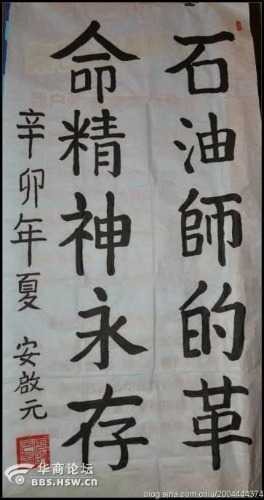 石油師的革
命精神永存
辛卯年夏 安啟元
华商论坛
BBS.HSW.CN
blog.sina.com.cn/u/2004444373